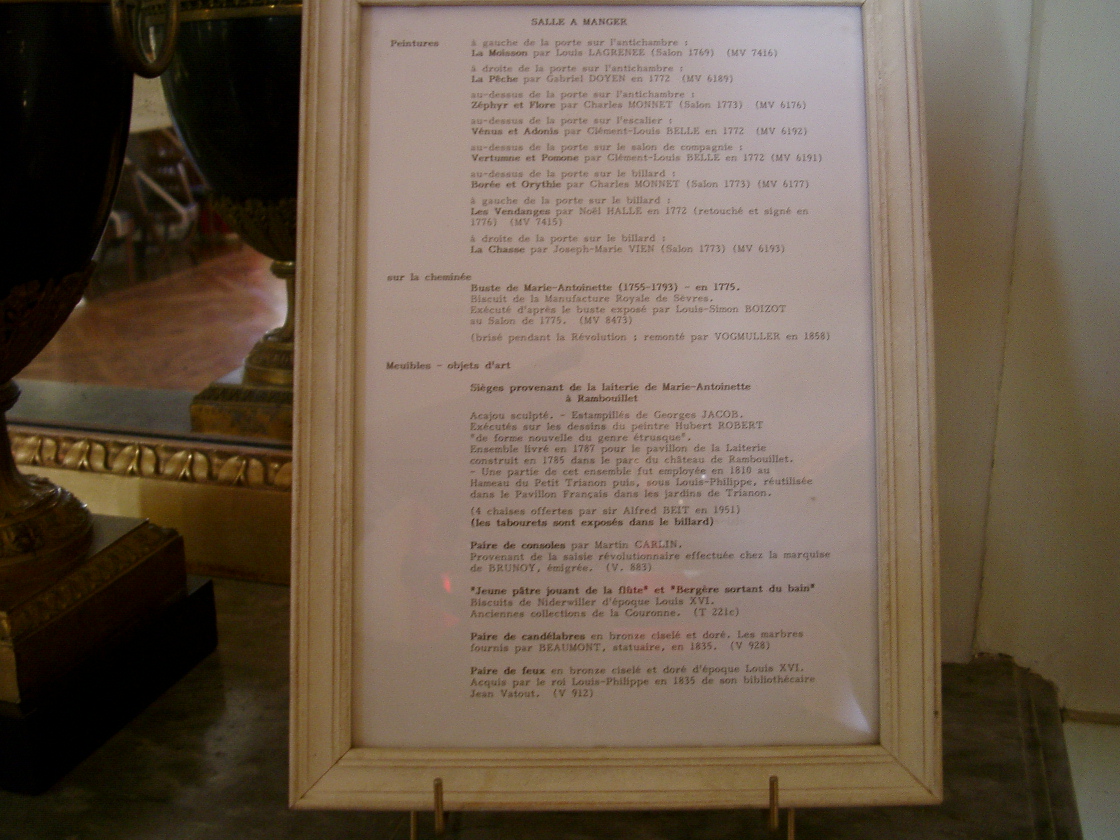 SALLE A MANGER
Peintures
à gauche de la porte sur l'antichambre :
La Moisson par Louis LAGRENEE (Salon 1769) (MV 7416)
à droite de la porte sur l'antichambre :
La Pêche par Gabriel DOYEN en 1772 (MV 6189)
au-dessus de la porte sur l'antichambre :
Zéphyr et Flore par Charles MONNET (Salon 1773) (MV 6176)
au-dessus de la porte sur l'escalier :
Vénus et Adonis par Clément-Louis BELLE en 1772 (MV 6192)
au-dessus de la porte sur le salon de compagnie :
Vertumne et Pomone par Clément-Louis BELLE en 1772 (MV 6191)
au-dessus de la porte sur le billard :
Borée et Orythie par Charles MONNET (Salon 1773) (MV 6177)
à gauche de la porte sur le billard :
Les Vendanges par Noël HALLE en 1772 (retouché et signé en
1776) (MV 7415)
à droite de la porte sur le billard :
La Chasse par Joseph-Marie VIEN (Salon 1773) (MV 6193)
sur la cheminée
Buste de Marie-Antoinette (1755-1793) - en 1775.
Biscuit de la Manufacture Royale de Sèvres.
Exécuté d'après le buste exposé par Louis-Simon BOIZOT
au Salon de 1775. (MV 8473)
(brisé pendant la Révolution ; remonté par VOGMULLER en 1858)
Meuibles - objets d'art
Sièges provenant de la laiterie de Marie-Antoinette
à Rambouillet
Acajou sculpté. - Estampillés de Georges JACOB.
Exécutés sur les dessins du peintre Hubert ROBERT
"de forme nouvelle du genre étrusque".
Ensemble livré en 1787 pour le pavillon de la Laiterie
construit en 1785 dans le parc du château de Rambouillet.
- Une partie de cet ensemble fut employée en 1810 au
Hameau du Petit Trianon puis, sous Louis-Philippe, réutilisée
dans le Pavillon Français dans les jardins de Trianon.
(4 chaises offertes par sir Alfred BEIT en 1951)
(les tabourets sont exposés dans le billard)
Paire de consoles par Martin CARLIN.
Provenant de la saisie révolutionnaire effectuée chez la marquise
de BRUNOY, émigrée. (V. 883)
"Jeune pâtre jouant de la flûte" et "Bergère sortant du bain"
Biscuits de Niderwiller d'époque Louis XVI.
Anciennes collections de la Couronne. (T 221c)
Paire de candélabres en bronze ciselé et doré. Les marbres
fournis par BEAUMONT, statuaire, en 1835. (V 928)
Paire de feux en bronze ciselé et doré d'époque Louis XVI.
Acquis par le roi Louis-Philippe en 1835 de son bibliothécaire
Jean Vatout. (V 912)